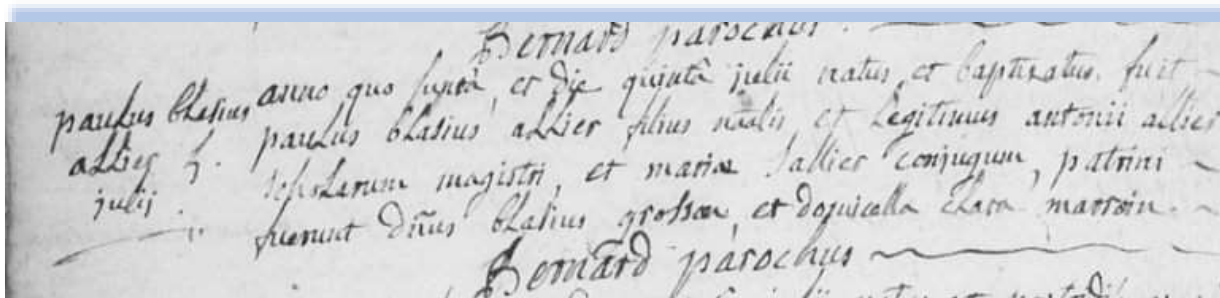 Bernard parochus.
paulus blasius allier 5. julij
anno quo suprà, et die quintâ julii natus, et baptizatus fuit
paulus blasius allier filius nãlis et legitimus antonii allier
scholarum magistri, et mariæ Sallier conjugum, patrini
fuerunt Dñus blasius grossan, et domicella clara marroin.
Bernard parochus